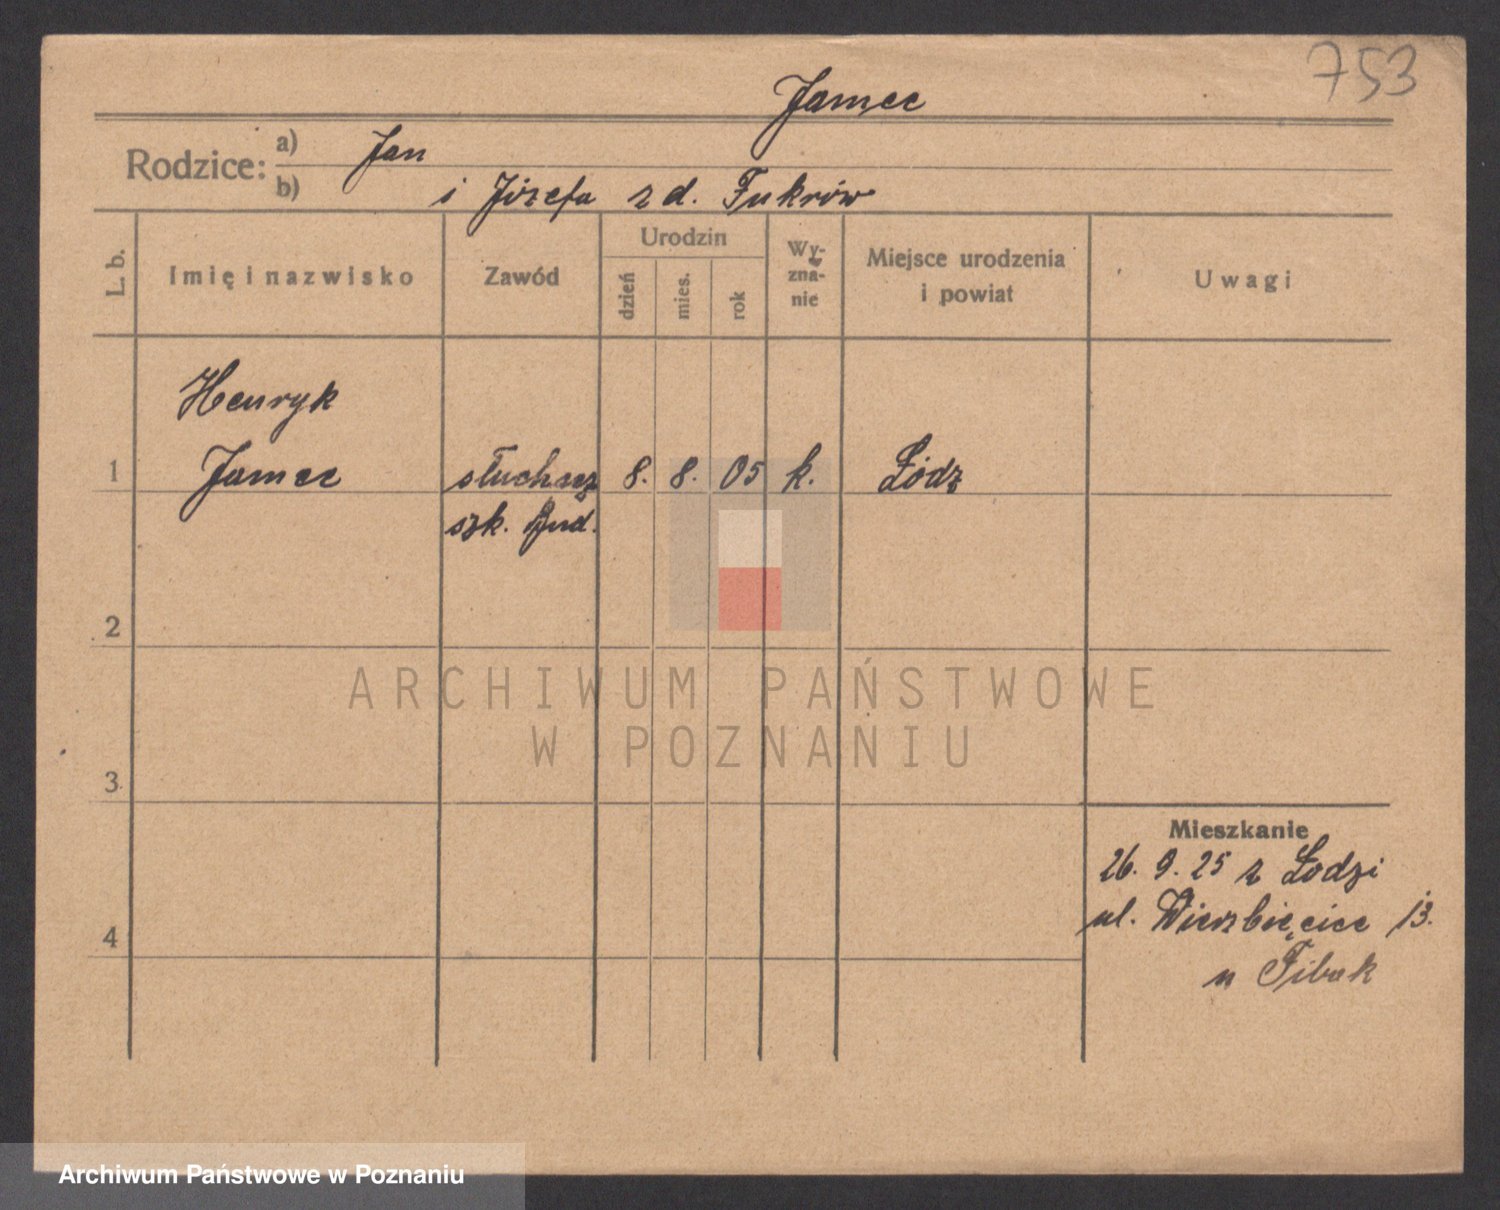 753
Jamee
Rodzice:
a) Jan
b) i Józefa z d. Fukrów
L. b.
Imię i nazwisko
Zawód
Urodzin
dzień
mies.
rok
Wy-
zna-
nie
Miejsce urodzenia
i powiat
Uwagi
Henryk
1 Jamee słuchacz 8. 8. 05 k. Łódź
szk. Bud.
2
3
4
ARCHIWUM PAŃSTWOWE
W POZNANIU
Mieszkanie
26. 9. 25 z Łodzi
ul. Wierzbięcice 13.
u Fibak
Archiwum Państwowe w Poznaniu